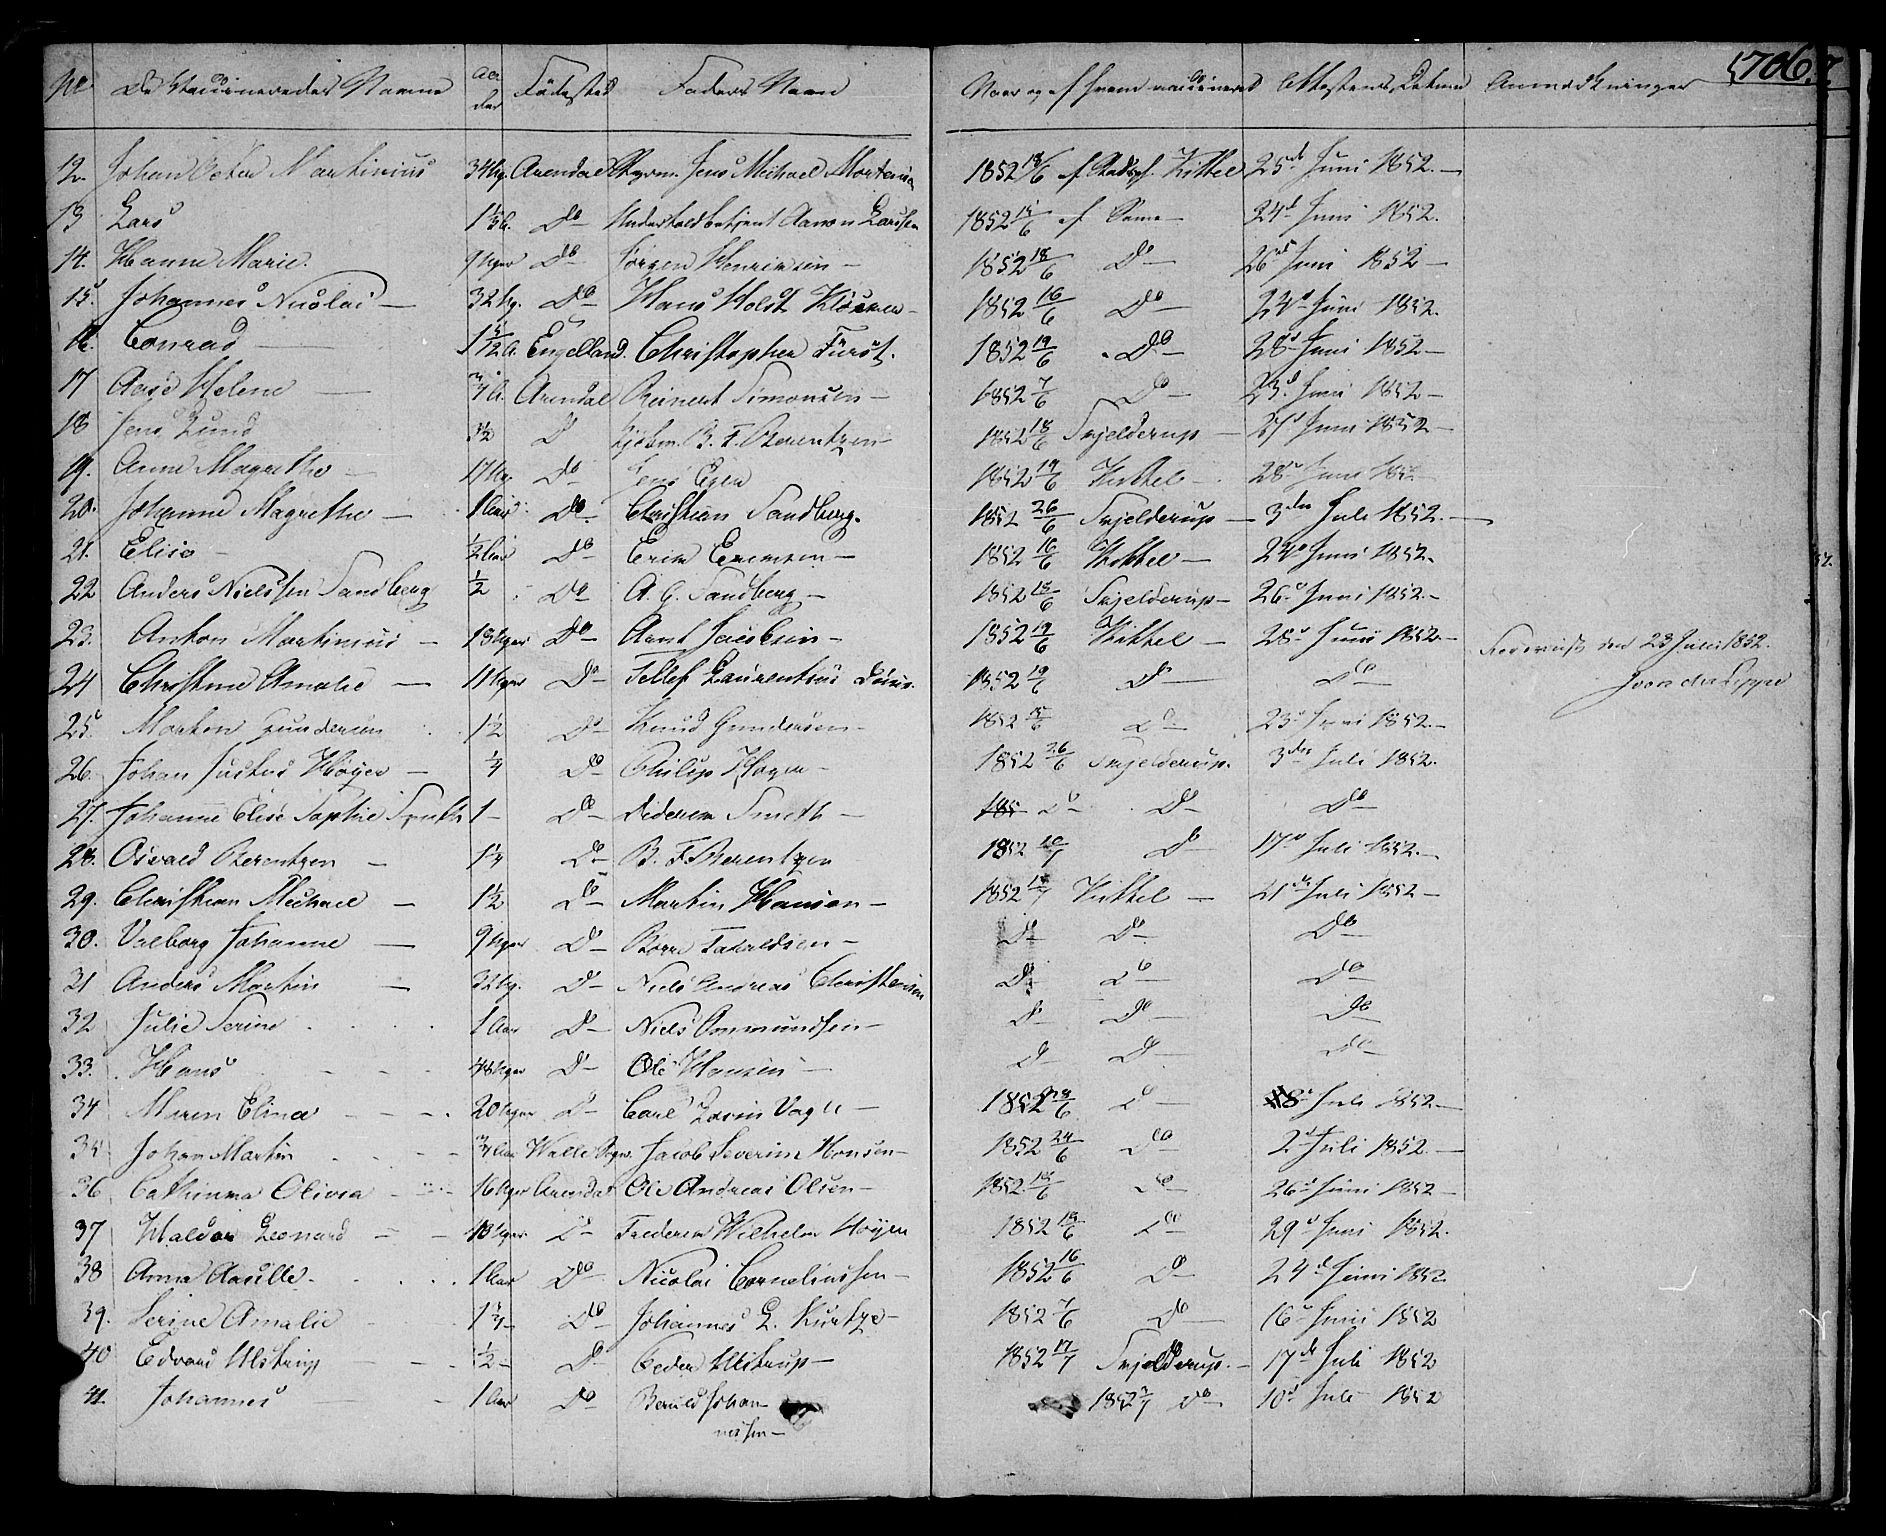 706
No De Vaccineredes Navne Alder Fødested Faders Navn Naar og af hvem vaccineret Attestens Datum Anmærkninger
12. Johan Peter Martinius 34 Ug. Arendal Jens Michael Mortensen 1852 18/6 af Kittel 25de Juni 1852.
13 Lars D° Aanon Larssen 1852 15/6 af Samme 24d Juni 1852.
14. Hanne Marie. 9 Uger D° Jørgen Henriksen 1852 18/6 D° 26d Juni 1852
15. Johannes Nicolai 32 Ug. D° Hans Holst 1852 16/6 D° 24d Juni 1852.
16. Conrad 1 5/12 A. Engelland. Christopher Fürst. 1852 19/6 D° 28d Juni 1852
17 Aase Helene 3/4 A. Arendal Reinert Simonsen 1852 7/6 D° 23d Juni 1852
18 Jens Lund D° B. F. Berentzen 1852 18/6 Schjelderup 27d Juni 1852
19. Anne Magrethe 17 Ug. D° Jens 1852 19/6 Kittel 28d Juni 1852
20. Johanne Magrethe 1 Aar D° Christian Sandberg. 1852 26/6 Schjelderup 3die Juli 1852.
21. Elise 1/2 Aar D° Erik Eriksen 1852 16/6 Kittel 24d Juni 1852.
22 Anders Nielssen Sandberg 1/2 D° A. G. Sandberg 1852 18/6 Schjelderup 26d Juni 1852.
23. Anton Martinius 13 Uger D° Arnt Jacobsen 1852 19/6 Kittel 28d Juni 1852.
24 Christine Amalie 11 Uger D° Tellef Laurentius 1852 19/6 D° D° den 23 Juli 1852.
von der Lippe
25. Morten Gundersen 1 1/2 D° Knud Gundersen 1852 15/6 D° 23d Juni 1852.
26. Johan Justus Høyer 1/4 D° Philip Høyer 1852 26/6 Schjelderup. 3die Juli 1852.
27. Johanne Elise Sophie Smith 1 D° Diderik Smith D° D° D°
28. Osvald Berentzen 1 1/4 D° B. F. Berentzen 1852 10/7 D° 17d Juli 1852.
29. Christian Michael 1 1/2 D° Martin Hansen 1852 Kittel 21de Juli 1852
30. Valborg Johanne 9 Uger D° Børre Taraldsen D° D° D°
31 Anders Martin 32 Ug. D° Niels Andreas Christensen D° D° D°
32 Julie Serine 1 Aar D° Niels Ommundsen D° D° D°
33. Hans 48 Uger D° Ole Hansen D° D° D°
34 Maren Elina 20 Uger D° Carl Vagle 1852 28/6 D° 8d Juli 1852.
35 Johan Martin 3/4 Aar Jacob Severin Hansen 1852 24/6 D° 2d Juli 1852.
36 Cathinka Olivia 16 Uger Arendal Ole Andreas Olsen 1852 18/6 D° 26d Juni 1852
37 Haldor Leonard Uger D° Frederik Wilhelm Høyer 1852 19/6 D° 29d Juni 1852.
38 Anna Aasille. 1 Aar D° Nicolai Corneliussen 1852 16/6 D° 24d Juni 1852
39. Serine Amalie 1 3/4 D° Johannes L. Kurtze 1852 7/6 D° 16d Juni 1852
40 Edvard Ulstrup 1/2 D° Peder Ulstrup 1852 17/7 Schjelderup. 17de Juli 1852
41. Johannes 1 Aar D° Berult Johan- 1852 3/7 D° 10d Juli 1852
nessen